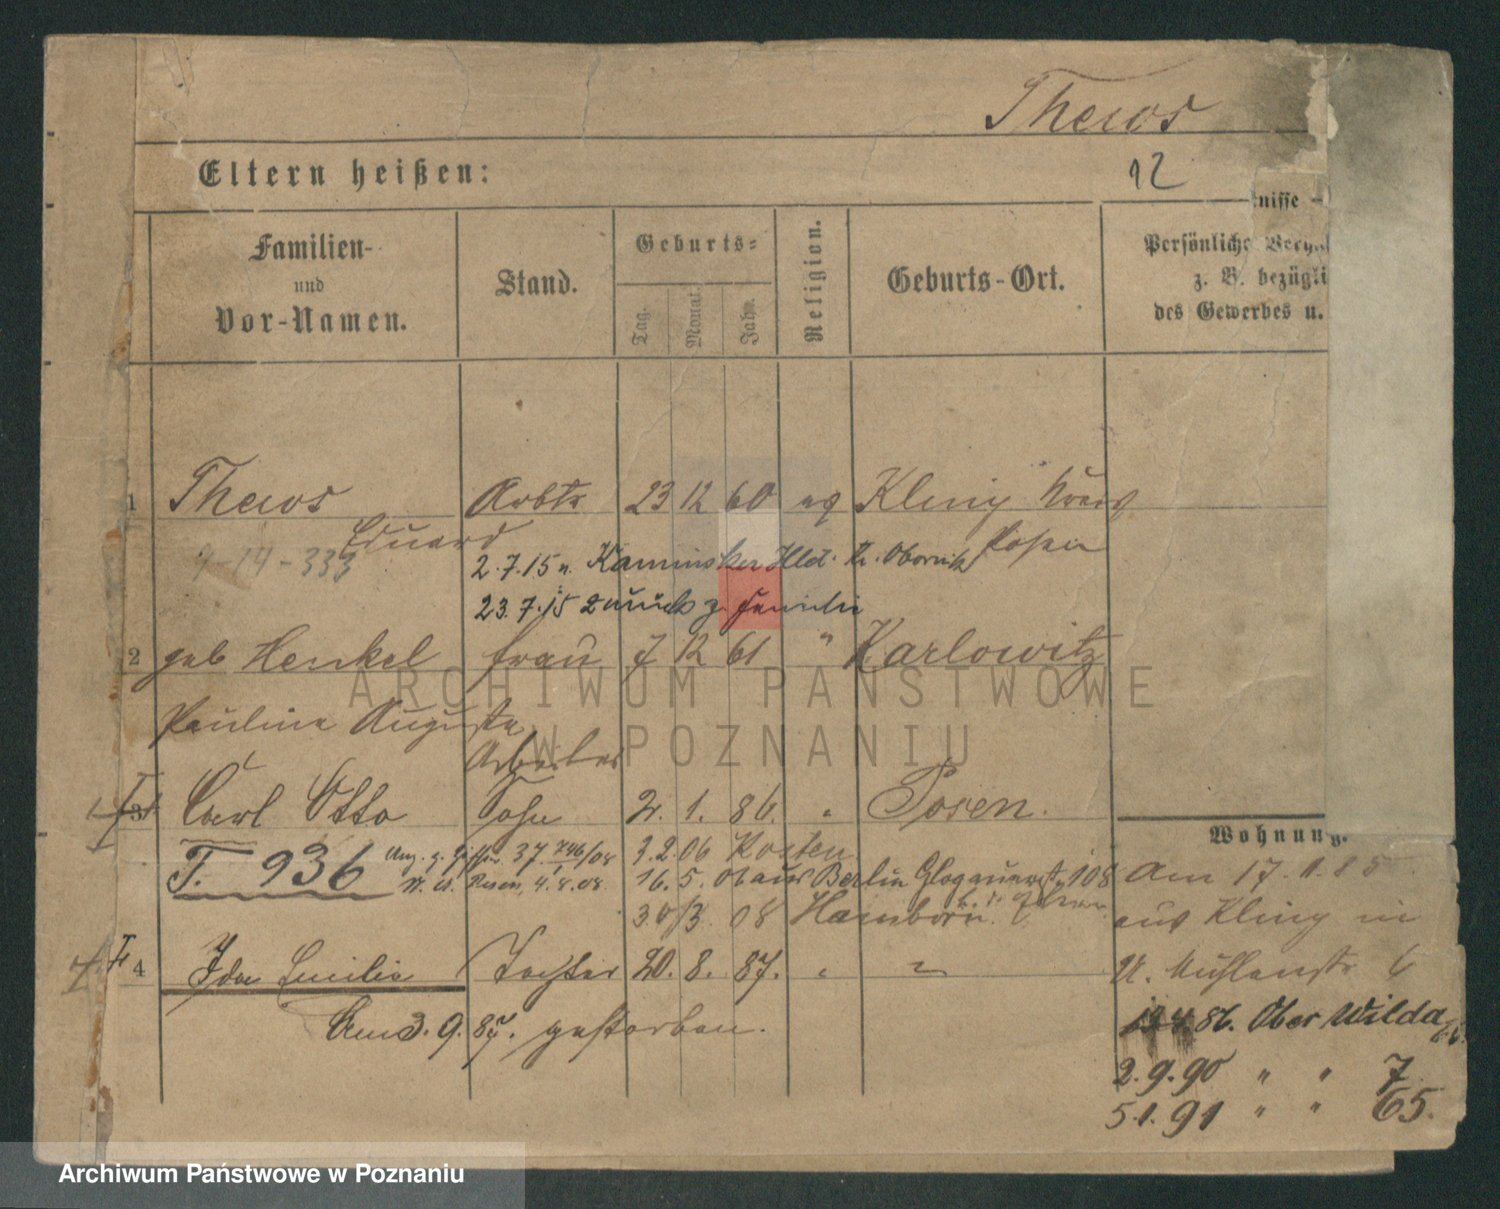 Thews
Eltern heißen:
12
nisse
Familien- und Vor-Namen.
Stand.
Geburts-
Tag.
Monat.
Jahr.
Religion.
Geburts-Ort.
Persönliche
z. B. bezügli
des Gewerbes u.
1 Thews Arbtr 23 12 60 ev Kleiny Kreis
Eduard Posen
2.7.15 n. Kr. Obornik
23.7.15 zurück z. Familie
2 geb Henkel Frau 7 12 61 " Karlowitz
Pauline Auguste
Arbeiter
3 Carl Otto Sohn 2. 1. 86. " Posen.
T. 936 37. 746/08 3.2.06 Kosten
Posen, 4.8.08. 16.5. 06 aus Berlin Glogauerstr 108
30/3 08 Hamborn.
4 Ida Emilie Tochter 20. 8. 87. " "
Am 3.9.87. gestorben.
Wohnung.
Am 17.1.85
aus Kleiny in
U. Mühlenstr 6
86. Ober Wilda
2.9.90 " " 7
5.1.91 " " 65.
ARCHIWUM PAŃSTWOWE
W POZNANIU
Archiwum Państwowe w Poznaniu